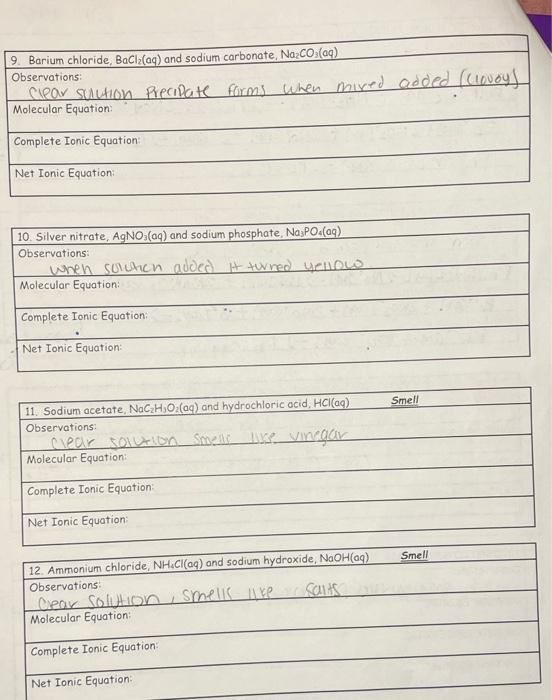 9. Barium chloride, BaCl₂(aq) and sodium carbonate, Na₂CO₃(aq)
Observations:
clear solution Precipate forms when mixed added (cloudy)
Molecular Equation:
Complete Ionic Equation:
Net Ionic Equation:
10. Silver nitrate, AgNO₃(aq) and sodium phosphate, Na₃PO₄(aq)
Observations:
when solution added it turned yellow
Molecular Equation:
Complete Ionic Equation:
Net Ionic Equation:
11. Sodium acetate, NaC₂H₃O₂(aq) and hydrochloric acid, HCl(aq) Smell
Observations:
clear solution smells like vinegar
Molecular Equation:
Complete Ionic Equation:
Net Ionic Equation:
12. Ammonium chloride, NH₄Cl(aq) and sodium hydroxide, NaOH(aq) Smell
Observations:
Clear solution, smells like salts
Molecular Equation:
Complete Ionic Equation:
Net Ionic Equation: